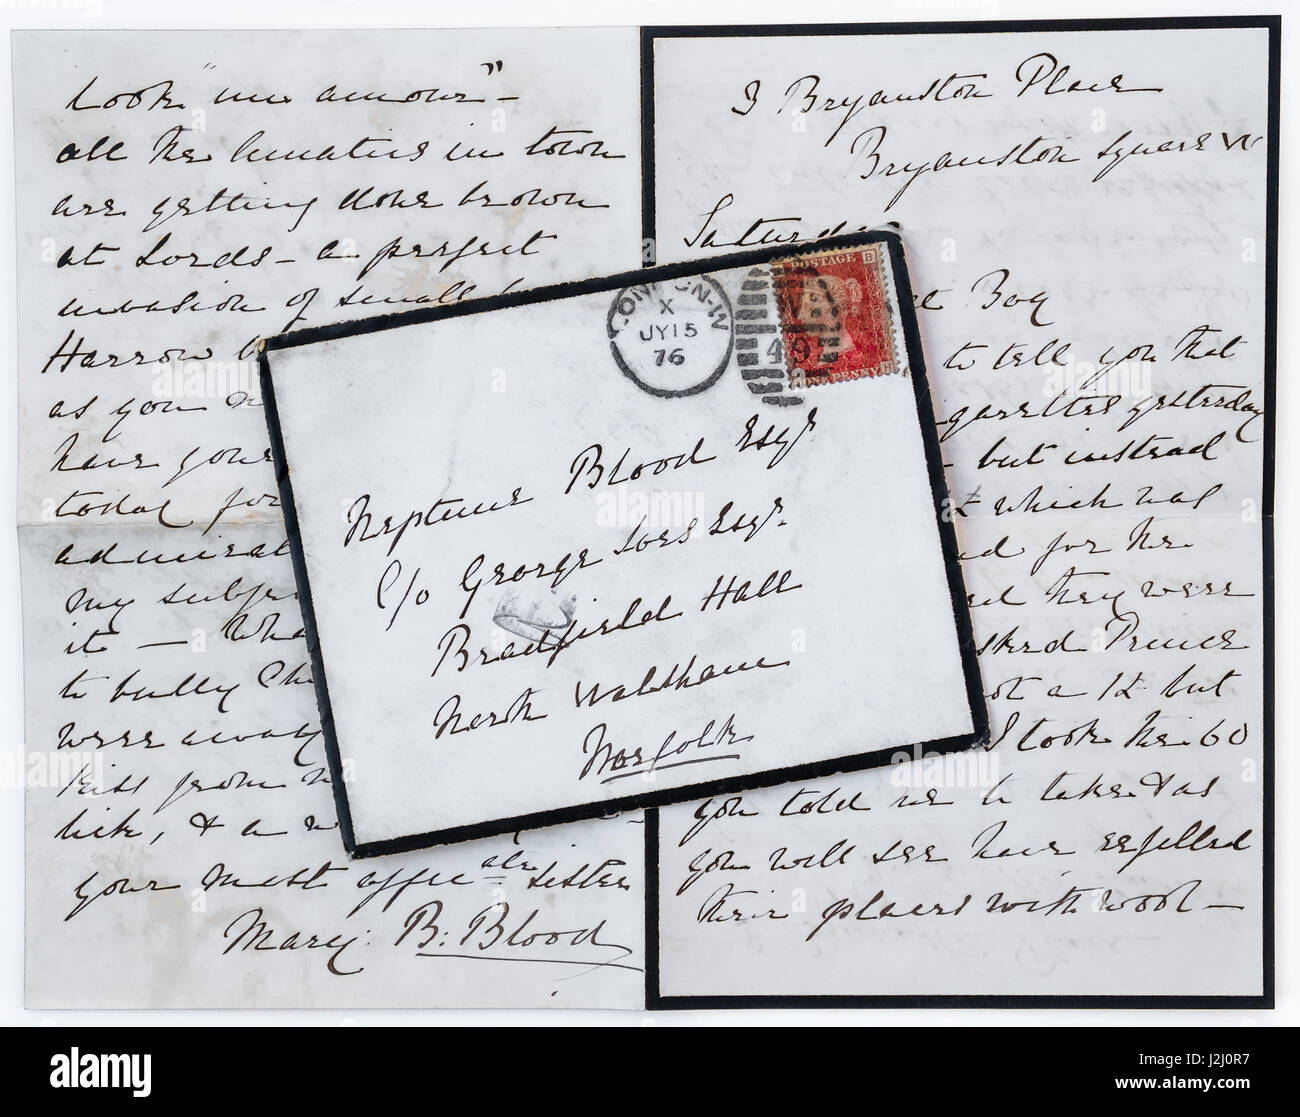 look "un amour" -
all the lunatics in town
are getting done brown
at Lords - a perfect
invasion of small
Harrow
as you
have your
today for
admiral
my subje
it -
to bully
were away
kiss from
lick, & a
your most affec ate sister
Mary. B. Blood
3 Bryanston Place
Bryanston Square W
Saturda
Boy
to tell you that
garettes yesterday
- but instead
which was
for the
they were
sked Prince
ot a 1/2 but
I took the 60
you told me to take & as
you will see have refilled
their places with wool -
LONDON-W
X
JY15
76
POSTAGE
B
49
ONE PENNY
H
Neptune Blood Esqr
c/o George Soes Esqr.
Bradfield Hall
North Waltham
Norfolk
alamy stock photo
alamy
Image ID: J2J0R7
www.alamy.com